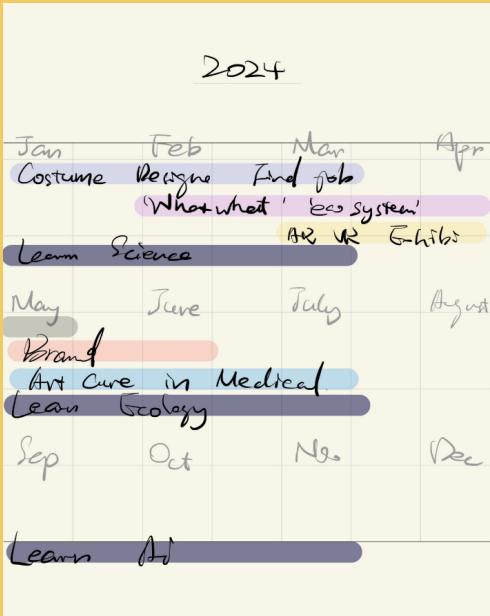 2024
Jan Feb Mar Apr
Costume Designe Find job
'Whatwhat' 'eco system'
AR VR Exhibi
Learn Science
May June July August
Brand
Art Cure in Medical
Learn Ecology
Sep Oct Nov Dec
Learn Ai